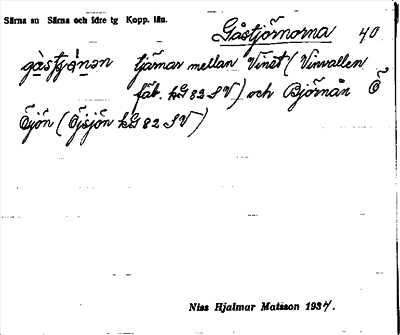 Särna sn Särna och Idre tg Kopp. län.
Gåstjörnorna 40
gàstjö́nən tjärnar mellan Vinåt (Vinvallen
fäb. kG 82 SV) och Björnån Ö
Öjön (Öjsjön kG 82 SV)
Niss Hjalmar Matsson 1937.